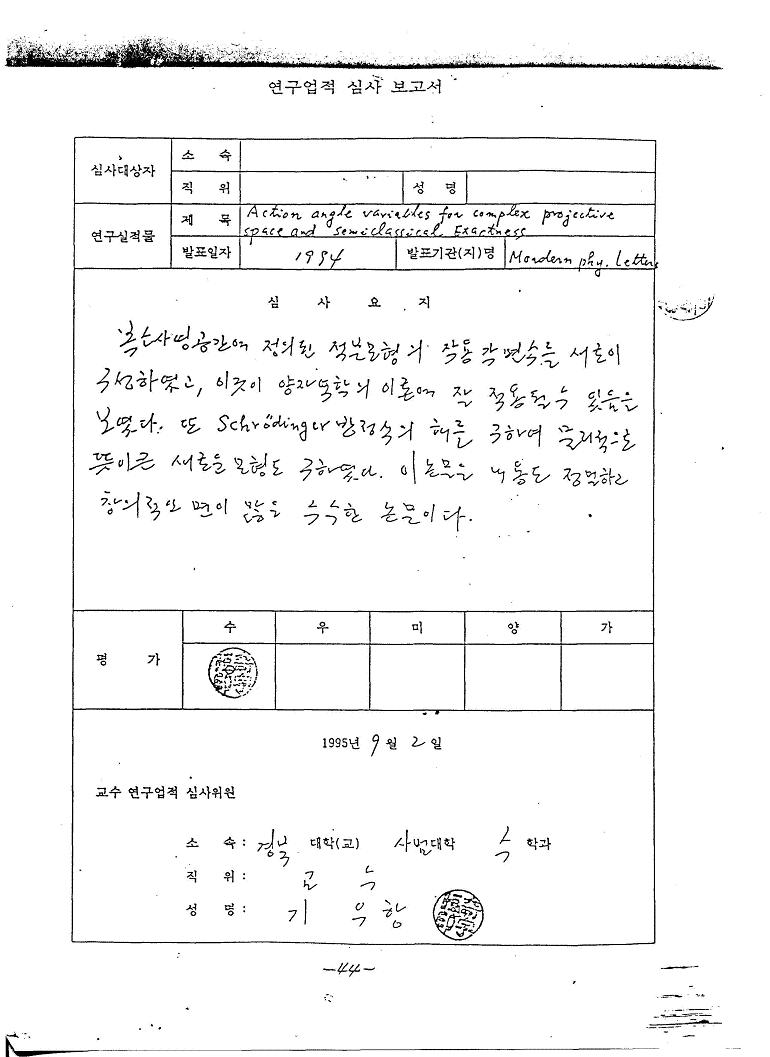 연구업적 심사 보고서
심사대상자
소 속
직 위
성 명
연구실적물
제 목
Action angle variables for complex projective
space and semiclassical Exactness
발표일자
1994
발표기관(지)명
Mordern phy. letters
심 사 요 지
복소사영공간에 정의된 적분모형의 작용각변수를 새로이
구성하였고, 이것이 양자역학의 이론에 잘 적용될 수 있음을
보였다. 또 Schrödinger 방정식의 해를 구하여 물리적으로
뜻이 큰 새로운 모형도 구하였다. 이 논문은 내용도 정밀하고
창의적인 면이 많은 우수한 논문이다.
평 가
수 우 미 양 가
1995년 9월 2일
교수 연구업적 심사위원
소 속: 경북 대학(교) 사범대학 수 학과
직 위: 교 수
성 명: 기 우 항
-44-